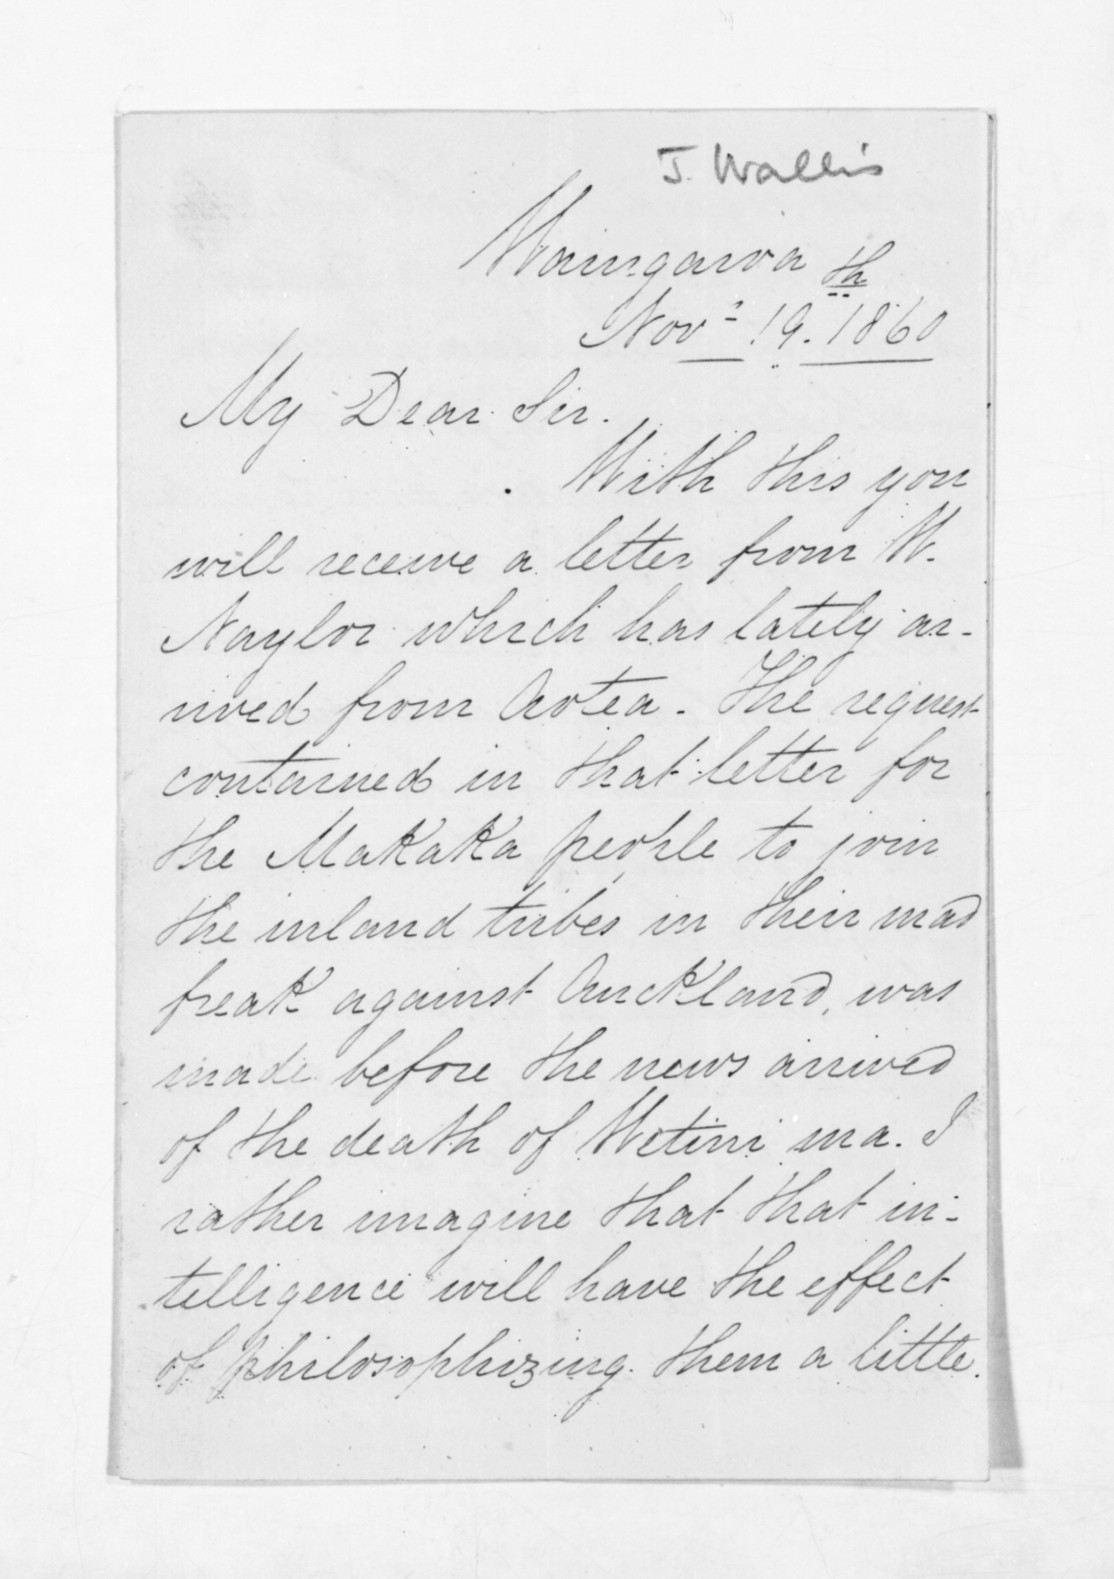 J. Wallis
Waingaroa
Novr 19th. 1860
My Dear Sir.
With this you
will receive a letter from W.
Naylor which has lately ar-
rived from Aotea. The request
contained in that letter for
the Makaka people to join
the inland tribes in their mad
freak against Auckland, was
made before the news arrived
of the death of Wetini ma. I
rather imagine that that in-
telligence will have the effect
of philosophizing them a little.